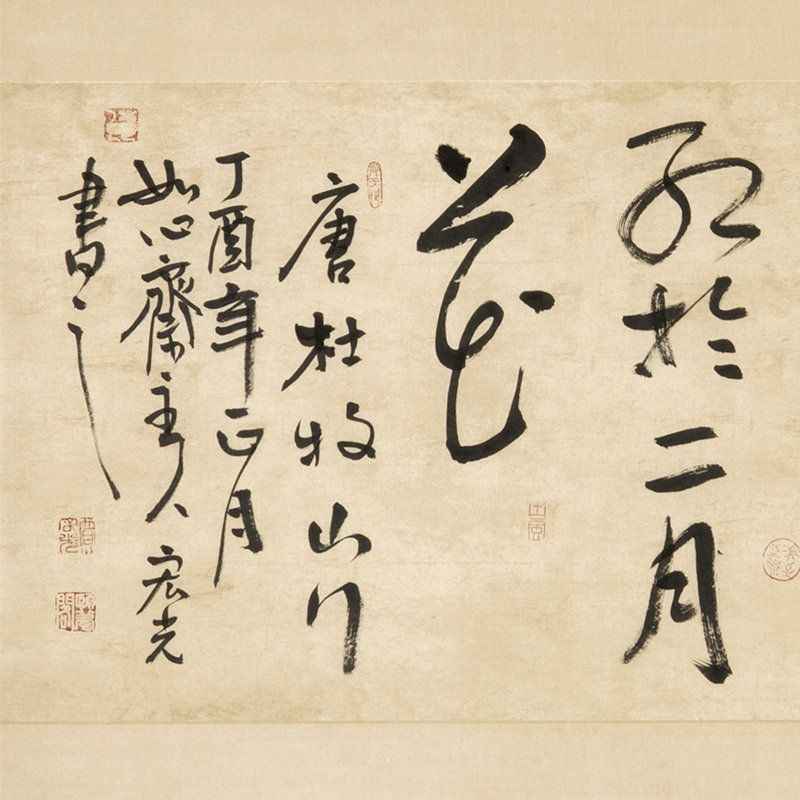 红於二月
花
唐杜牧山行
丁酉年正月
如心齋主人宏光
書之